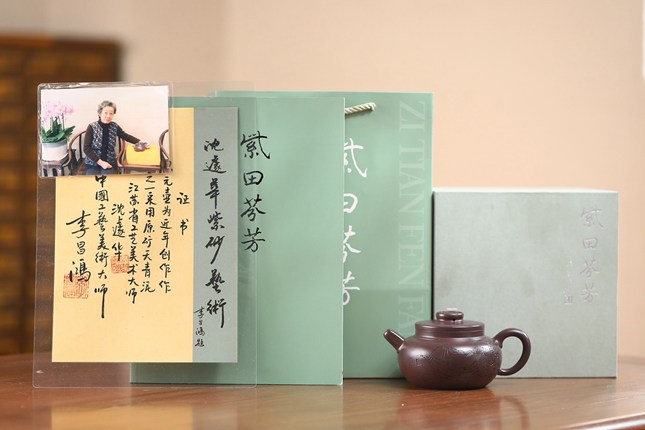 紫田芬芳
沈蘧華紫砂藝術
李昌鴻题
证书
元壶为近年创作作
之一采用原矿天青泥
江苏省工艺美术大师
沈蘧华
中國工藝美術大师
李昌鴻
ZI TIAN FEN FA
紫田芬芳
紫田芬芳